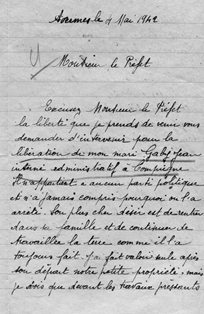 le 4 Mai 1942
Monsieur le Préfet
Excusez Monsieur le Préfet
la liberté que je prends de venir vous
demander d'intervenir pour la
libération de mon mari Gabig Jean
interné administratif à Compiègne
N'appartenant a aucun parti politique
il n'a jamais compris pourquoi on l'a
arrêté. Son plus cher désir est de rentrer
dans sa famille et de continuer de
travailler la terre comme il l'a
toujours fait. J'ai fait valoir seule après
son départ notre petite propriété, mais
je dois que devant les travaux pressants